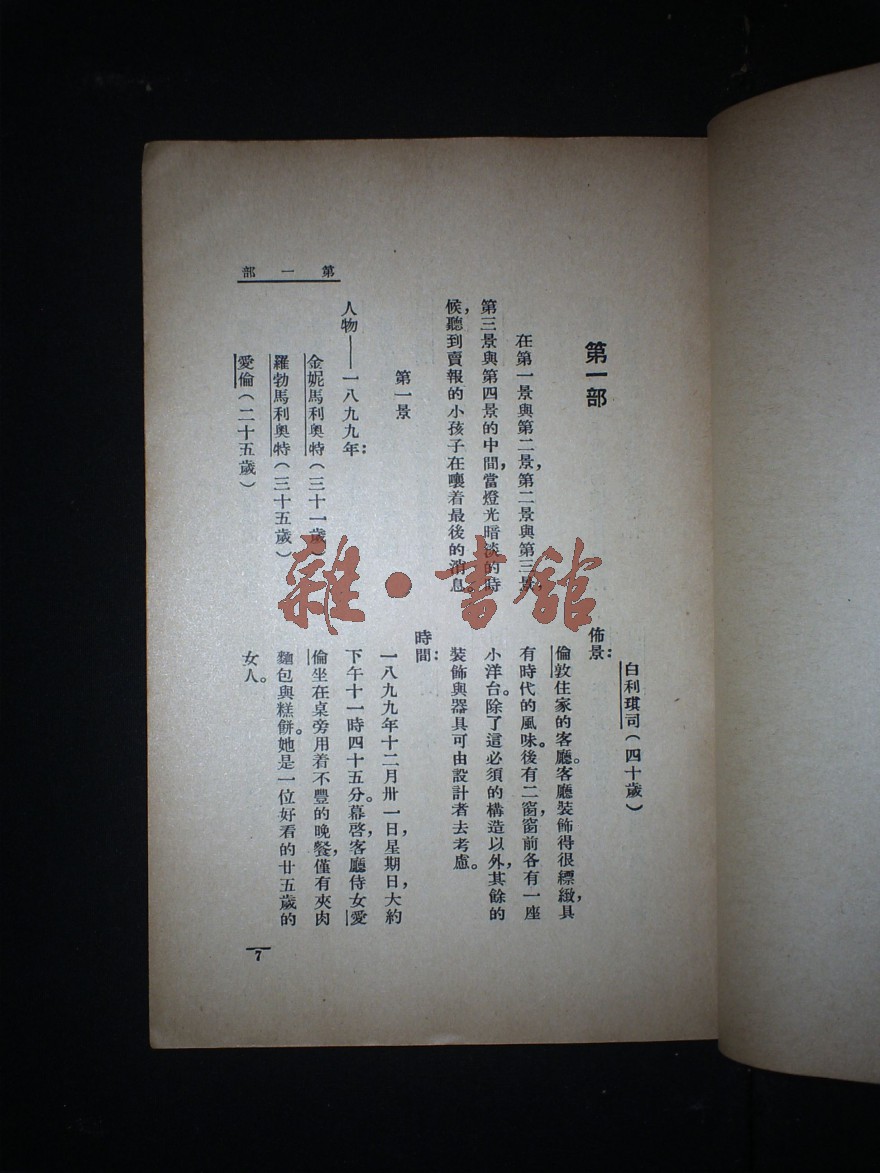 第一部
第一部
在第一景與第二景，第二景與第三景，
第三景與第四景的中間，當燈光暗淡的時
候，聽到賣報的小孩子在嚷着最後的消息。
第一景
人物——一八九九年：
金妮馬利奧特（三十一歲）
羅勃馬利奧特（三十五歲）
愛倫（二十五歲）
白利琪司（四十歲）
佈景：
倫敦住家的客廳。客廳裝飾得很縹緻，具
有時代的風味。後有二窗，窗前各有一座
小洋台。除了這必須的構造以外，其餘的
裝飾與器具可由設計者去考慮。
時間：
一八九九年十二月卅一日，星期日，大約
下午十一時四十五分。幕啓，客廳侍女愛
倫坐在桌旁用着不豐的晚餐，僅有夾肉
麵包與糕餅。她是一位好看的廿五歲的
女人。
7
雜·書館